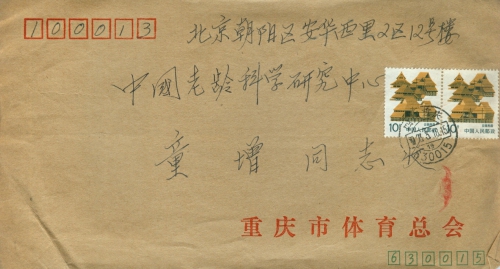 100013
北京朝阳区安华西里2区12号楼
中國老龄科学研究中心
童增同志
10 中国人民邮政
10 中国人民邮政
重庆市体育总会
630015